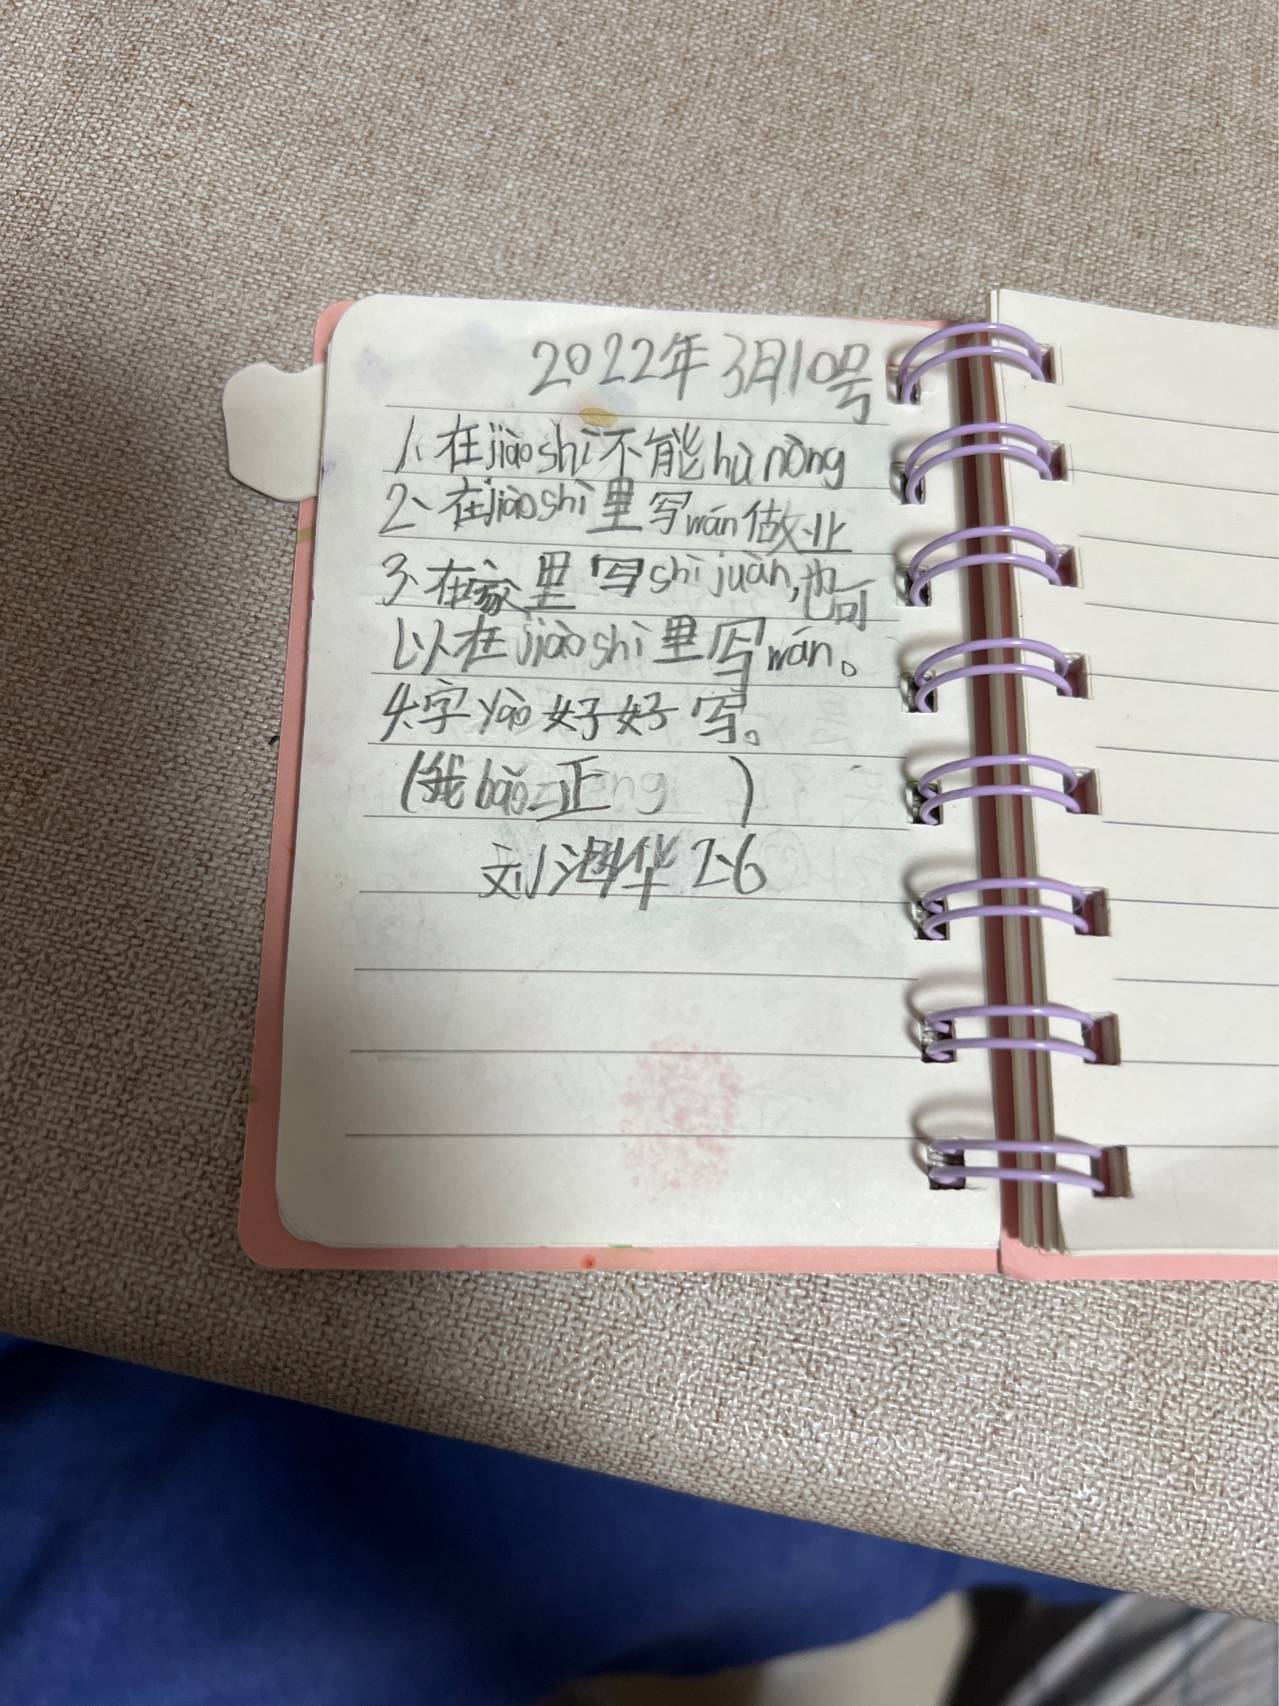 2022年3月10号
1、在jiàoshì不能hù nòng
2、在jiàoshì里写wán做业
3、在家里写shì juàn,也可
以在jiàoshì里写wán。
4、字yào好好写。
(我bǎo正 )
刘 华 2、6